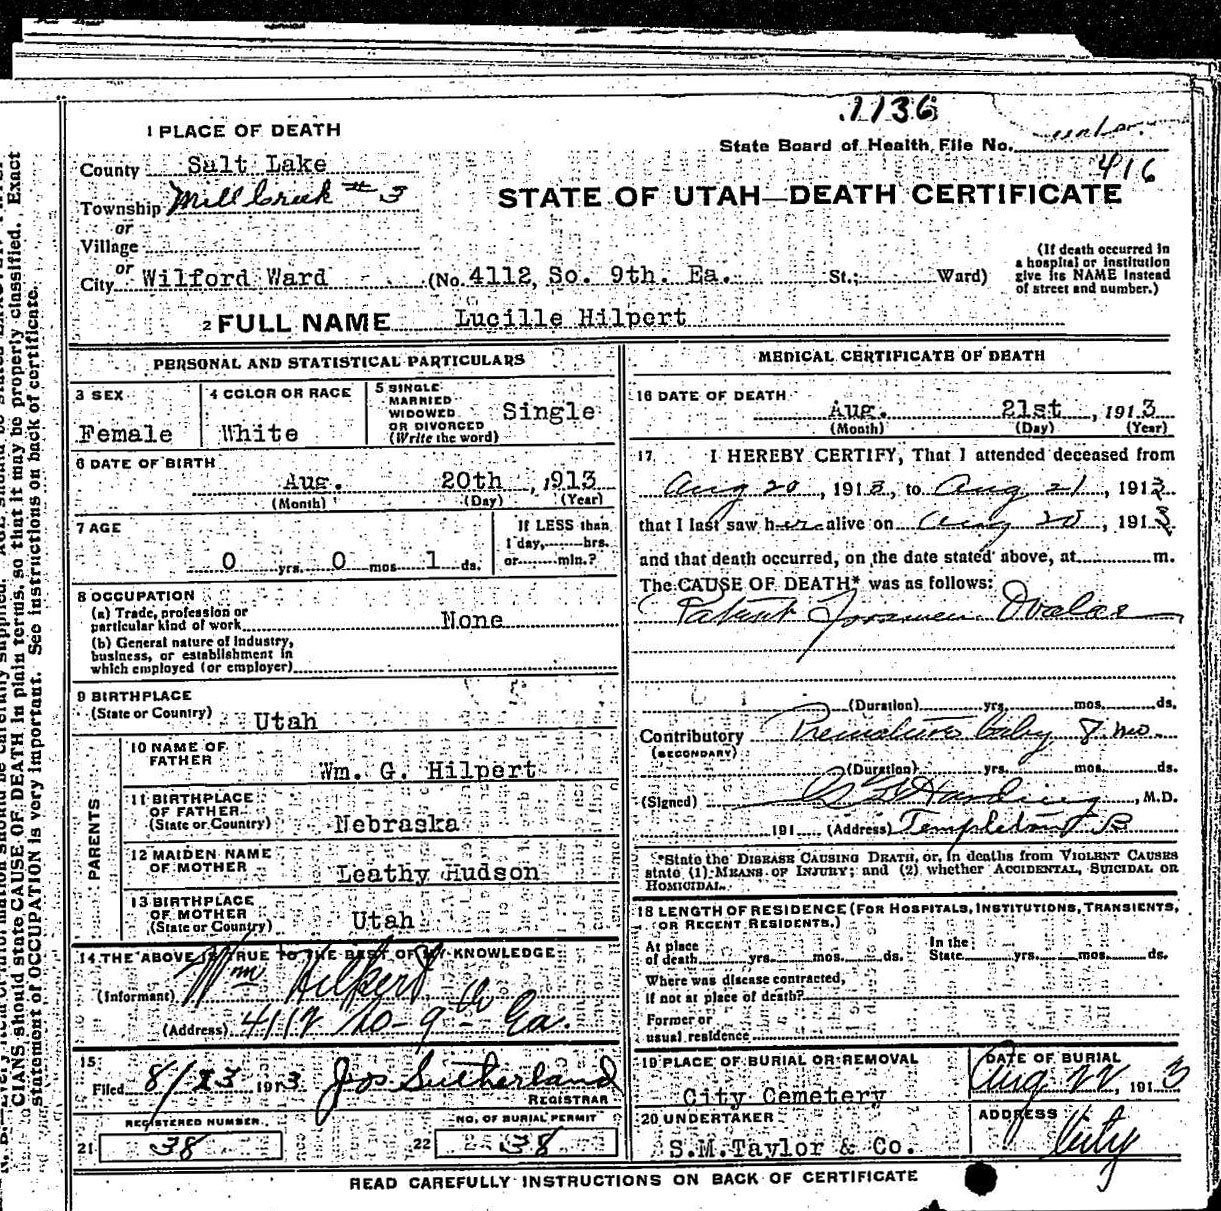 1136
1 PLACE OF DEATH
State Board of Health File No.
416
County Salt Lake
STATE OF UTAH—DEATH CERTIFICATE
Township Mill Creek # 3
or
Village
or
City Wilford Ward (No. 4112, So. 9th. Ea. St.; Ward)
(If death occurred in
a hospital or institution
give its NAME instead
of street and number.)
2 FULL NAME Lucille Hilpert
PERSONAL AND STATISTICAL PARTICULARS
3 SEX
Female
4 COLOR OR RACE
White
5 SINGLE
MARRIED
WIDOWED
OR DIVORCED
(Write the word)
Single
6 DATE OF BIRTH
Aug. 20th, 1913
(Month) (Day) (Year)
7 AGE
0 yrs. 0 mos 1 ds.
If LESS than
1 day, hrs.
or min.?
8 OCCUPATION
(a) Trade, profession or
particular kind of work None
(b) General nature of industry,
business, or establishment in
which employed (or employer)
9 BIRTHPLACE
(State or Country) Utah
PARENTS
10 NAME OF
FATHER
Wm. G. Hilpert
11 BIRTHPLACE
OF FATHER
(State or Country) Nebraska
12 MAIDEN NAME
OF MOTHER
Leathy Hudson
13 BIRTHPLACE
OF MOTHER
(State or Country) Utah
14 THE ABOVE IS TRUE TO THE BEST OF MY KNOWLEDGE
(Informant) Wm Hilpert
(Address) 4112 So-9th Ea.
15
Filed 8/23 1913 Jos Sutherland
REGISTRAR
REGISTERED NUMBER
21 38
NO. OF BURIAL PERMIT
22 38
MEDICAL CERTIFICATE OF DEATH
16 DATE OF DEATH
Aug. 21st, 1913
(Month) (Day) (Year)
17 I HEREBY CERTIFY, That I attended deceased from
Aug 20, 1913, to Aug 21, 1913
that I last saw her alive on Aug 20, 1913
and that death occurred, on the date stated above, at m.
The CAUSE OF DEATH* was as follows:
Patent Foramen Ovalae
(Duration) yrs. mos. ds.
Contributory Premature baby 8 mo.
(SECONDARY)
(Duration) yrs. mos. ds.
(Signed) Harding, M.D.
191 (Address) Templeton B
*State the DISEASE CAUSING DEATH, or, in deaths from VIOLENT CAUSES
state (1) MEANS OF INJURY; and (2) whether ACCIDENTAL, SUICIDAL OR
HOMICIDAL.
18 LENGTH OF RESIDENCE (FOR HOSPITALS, INSTITUTIONS, TRANSIENTS,
OR RECENT RESIDENTS.)
At place
of death yrs. mos. ds.
In the
State yrs. mos. ds.
Where was disease contracted,
if not at place of death?
Former or
usual residence
19 PLACE OF BURIAL OR REMOVAL
City Cemetery
DATE OF BURIAL
Aug 22, 1913
20 UNDERTAKER
S.M. Taylor & Co.
ADDRESS
City
READ CAREFULLY INSTRUCTIONS ON BACK OF CERTIFICATE
CIANS should state CAUSE OF DEATH in plain terms, so that it may be properly classified. Exact
statement of OCCUPATION is very important. See instructions on back of certificate.